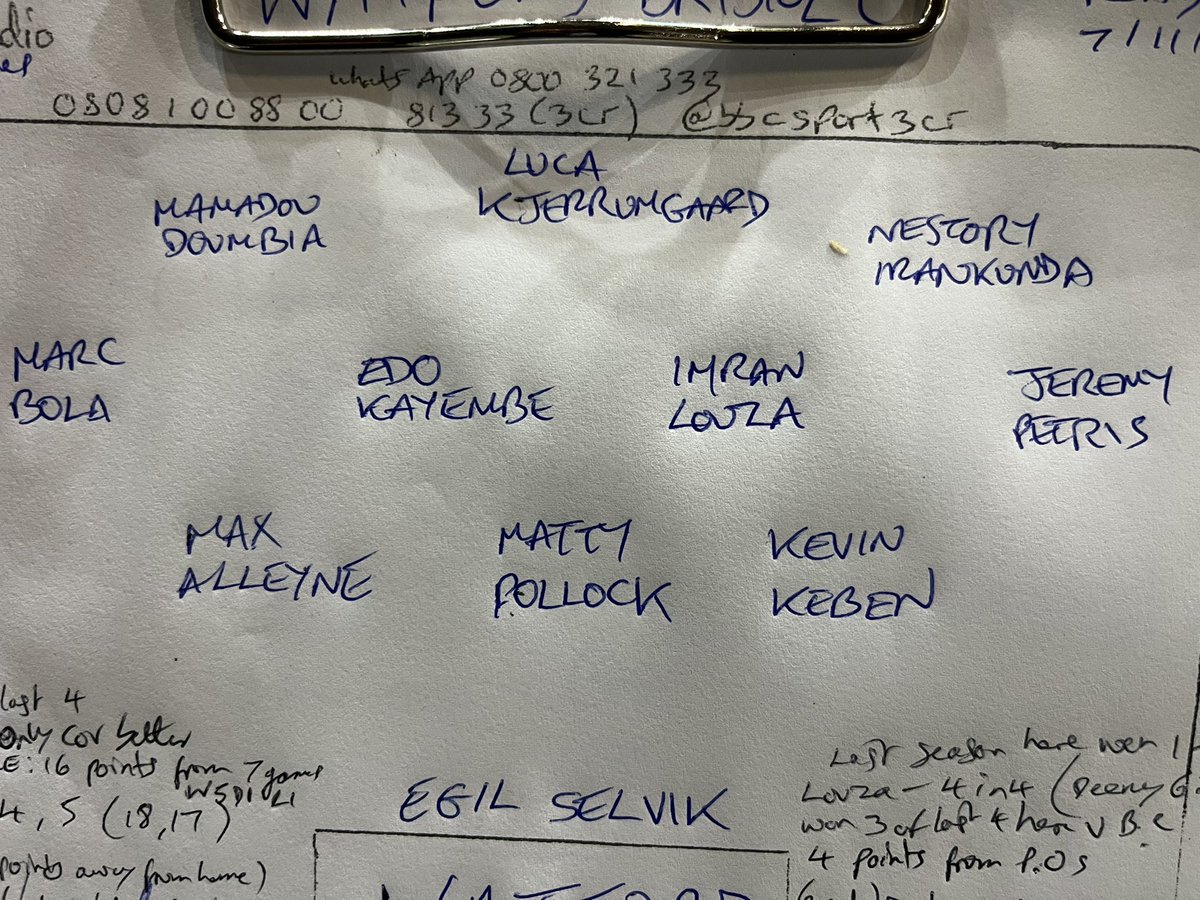 dio
WhatsApp 0800 321 333
7/11/
08081008800 81333 (3cr) @bbcsport3cr
LUCA
KJERRUMGAARD
MAMADOU
DOUMBIA
NESTORY
IRANKUNDA
MARC
BOLA
EDO
KAYEMBE
IMRAN
LOUZA
JEREMY
PETRIS
MAX
ALLEYNE
MATTY
POLLOCK
KEVIN
KEBEN
last 4
only cov better
E: 16 points from 7 games
W5D1L1
4, 5 (18,17)
points away from home)
EGIL SELVIK
Last season here won 1
Louza - 4 in 4 (Deeney
won 3 of last 4 here v B.C
4 points from P.Os
WATFORD